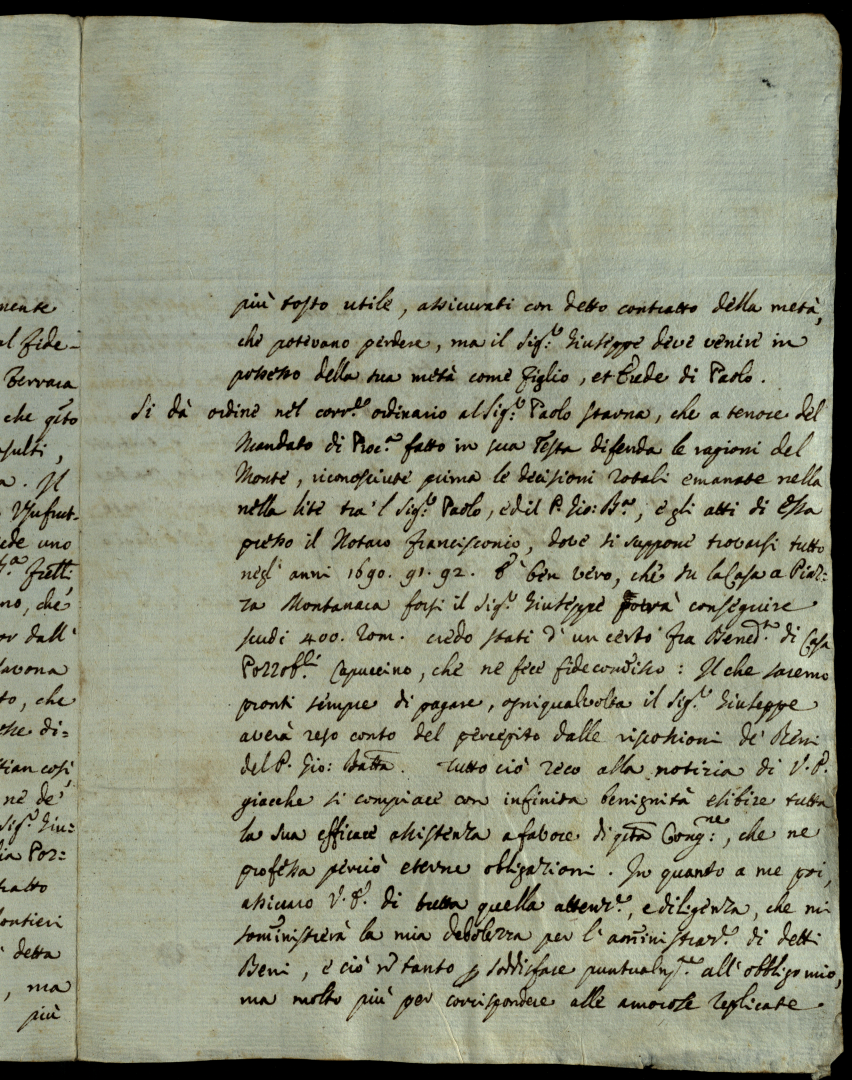 più tosto utile, assicurati con detto contratto della metà,
che potevano perdere, ma il Sig.r Giuseppe deve venire in
possesso della sua metà come figlio, et Erede di Paolo.
Si dà ordine nel corr.te ordinario al Sig.r Paolo Stavna, che a tenore del
Mandato di Proc.a fatto in sua Testa difenda le ragioni del
Monte, riconosciute prima le decisioni rotali emanate nella
nella lite tra 'l Sig.r Paolo, ed il P. Gio: B.a, e gli atti di Essa
presso il Notaro Francisconio, dove si suppone trovarsi tutto
negl' anni 1690. 91. 92. E' ben vero, che su la Casa a Piaz=
za Montanara forsi il Sig.r Giuseppe potrà conseguire
scudi 400. Rom. credo stati d' un certo fra Bened.o di Casa
Pozzob.li Capuccino, che ne fece fidecomisso: Il che saremo
pronti sempre di pagare, ogniqualvolta il Sig.r Giuseppe
averà reso conto del percepito dalle riscossioni de' Beni
del P. Gio: Batta. Tutto ciò reco alla notizia di V. P.
giacche si compiace con infinita benignità esibire tutta
la sua efficace assistenza a favore di q̃ta Cong.ne, che ne
professa perciò eterne obligazioni. In quanto a me poi,
assicuro V. P. di tutta quella attenz.e, e diligenza, che mi
som̃inistrerà la mia debolezza per l' am̃inistraz.e di detti
Beni, e ciò nõ tanto p soddisfare puntualm.te all' obbligo mio,
ma molto più per corrispondere alle amorose replicate
mente
al fide-
Ferrara
che q̃to
sulti,
a. Il
Usufrut-
ede uno
frelli
no, che
or dall'
Savona
to, che
esse di=
tian così,
ne de'
Sig.r Giu=
ia Poz=
tratto
lontieri
detta
, ma
più